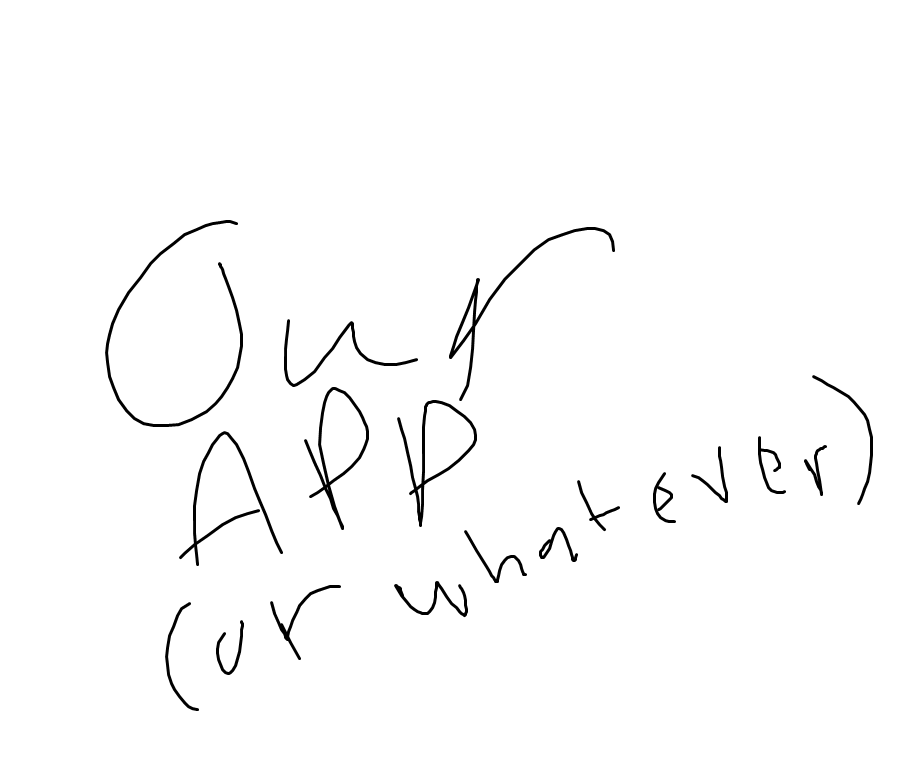 Our
APP
(or whatever)